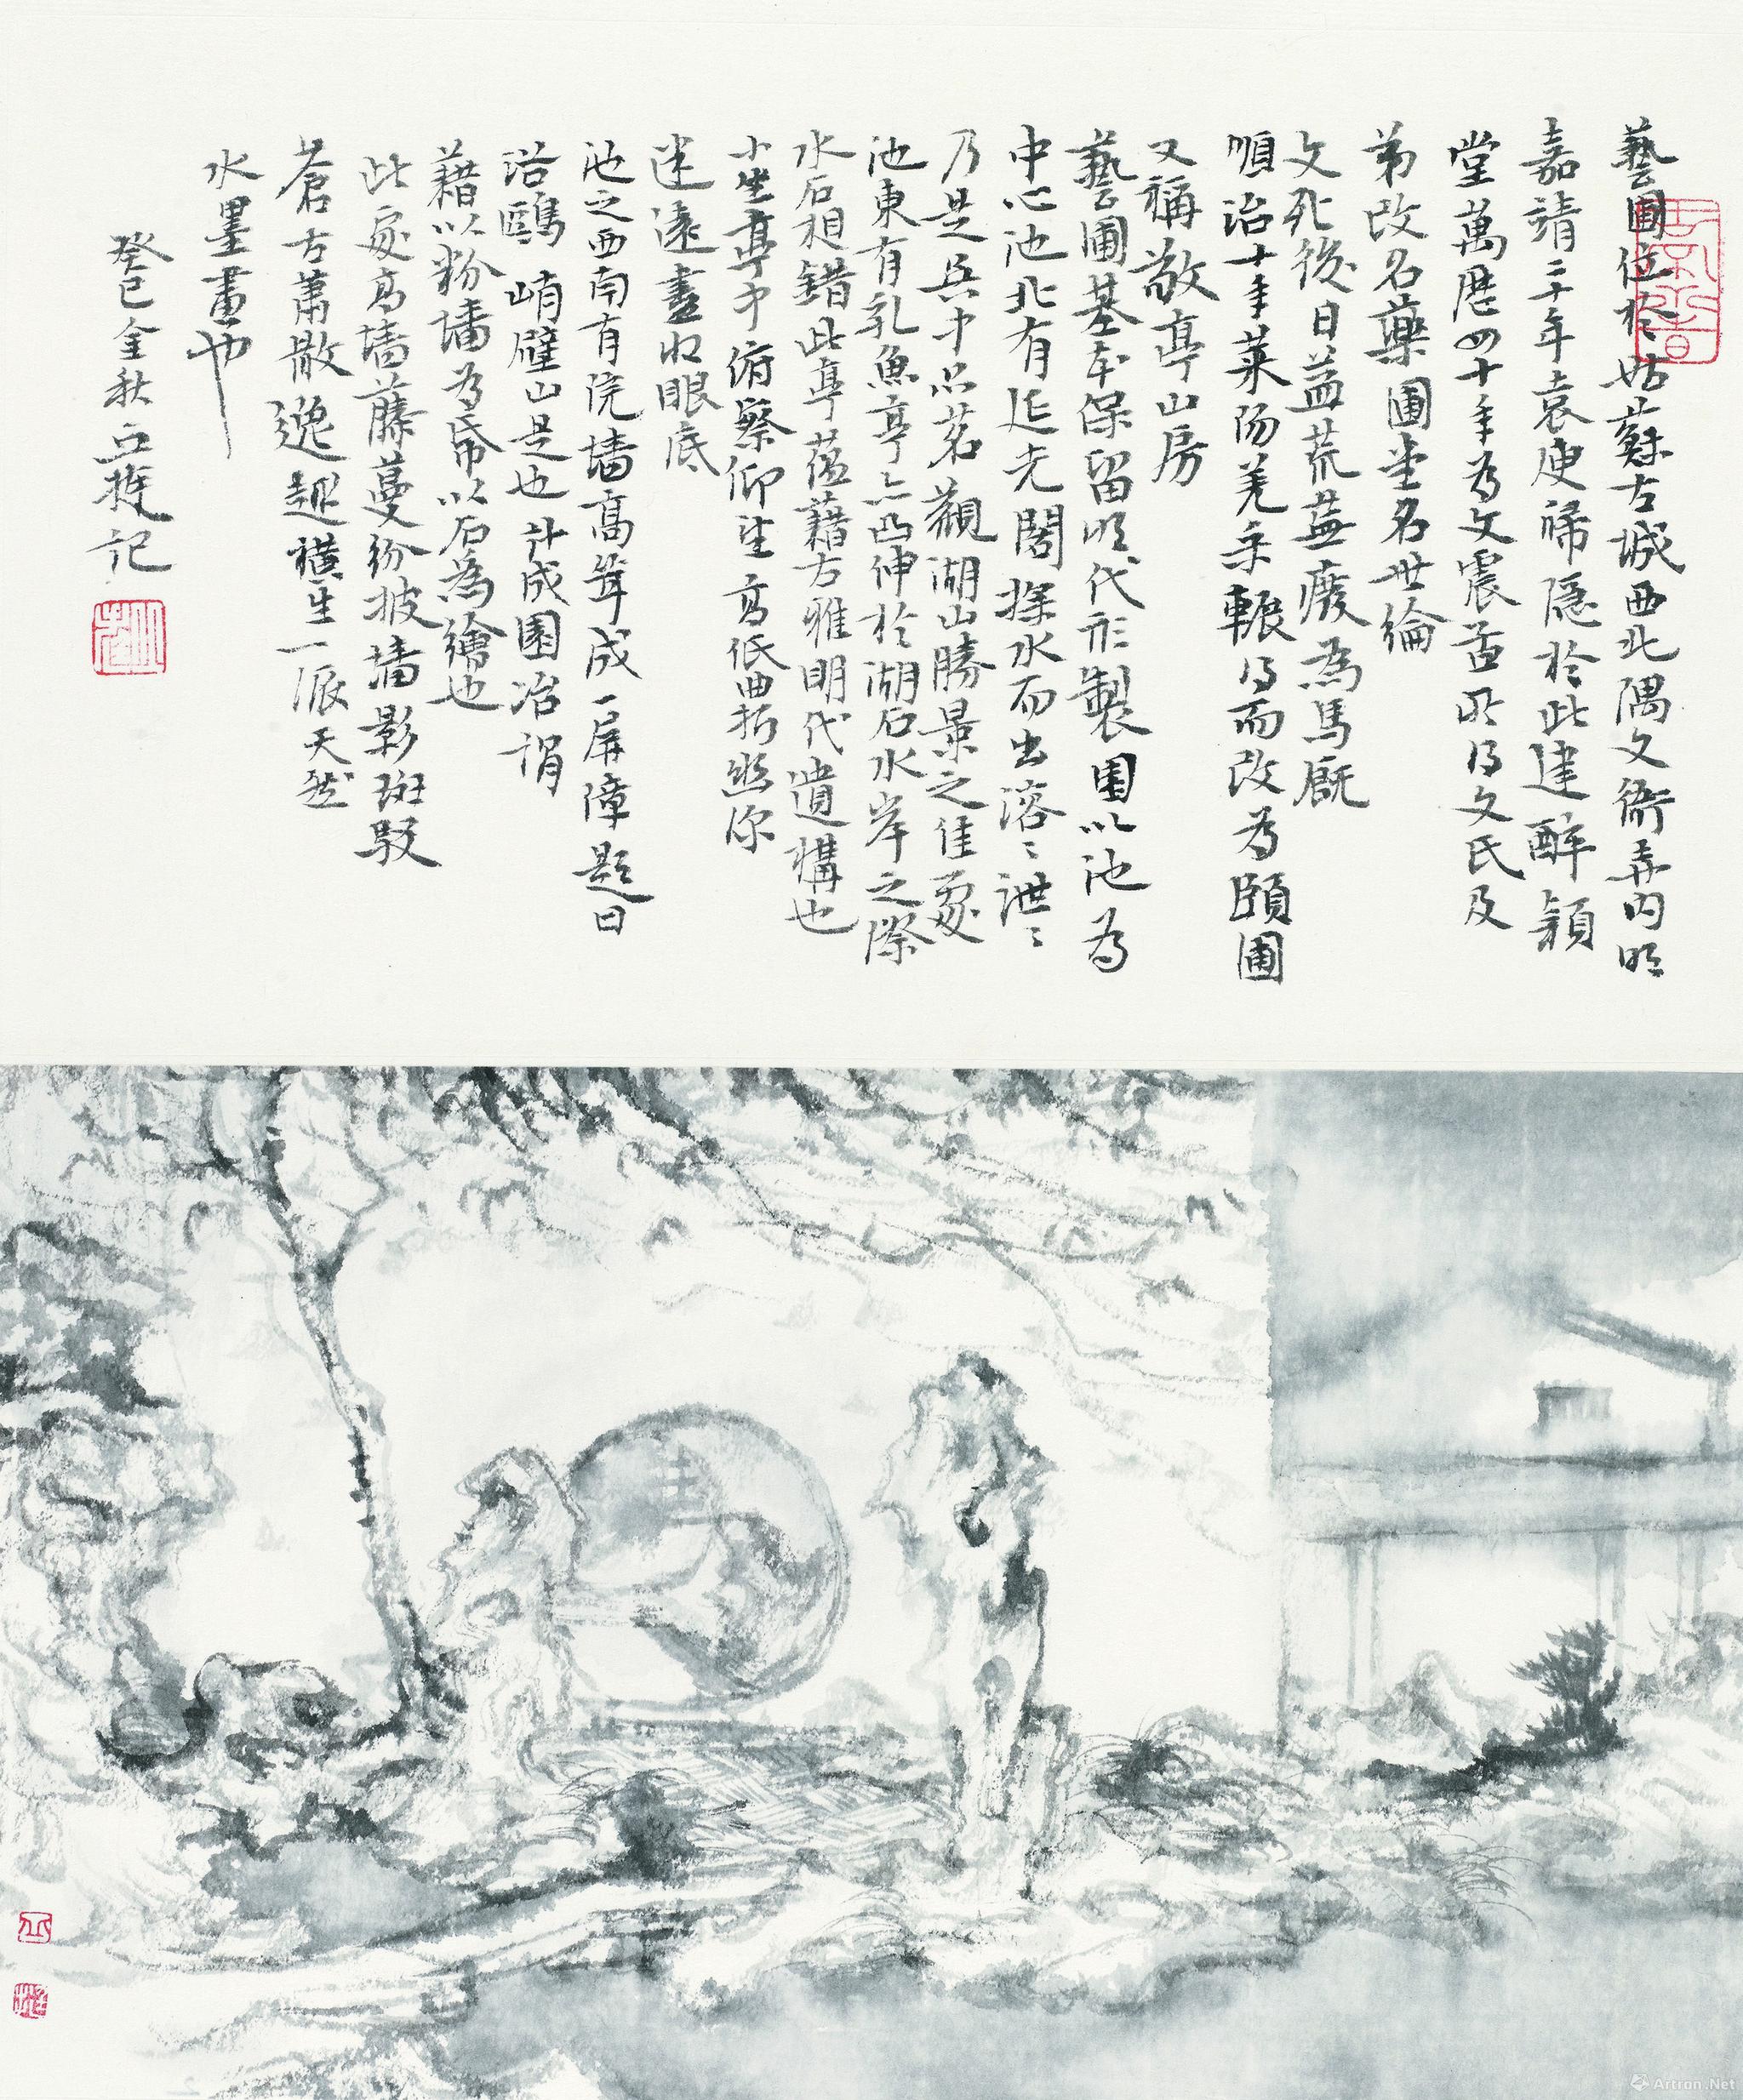 藝圃位於姑蘇古城西北隅文衙弄内明
嘉靖二十年袁庾歸隱於此建醉穎
堂萬歷四十年為文震孟所得文氏及
弟改名藥圃生名世綸
文死後日益荒蕪廢為馬厩
順治十年萊陽姜采輾得而改為頤圃
又稱敬亭山房
藝圃基本保留明代形製園以池為
中心池北有延光閣探水而出溶溶泄泄
乃是其中品茗觀湖山勝景之佳處
池東有乳魚亭亦凸伸於湖石水岸之際
水石相錯此亭蘊藉古雅明代遺構也
小坐亭中俯察仰望高低曲折幽深
迷遠盡收眼底
池之西南有院墻高聳成一屏障題曰
浴鷗 峭壁山是也計成園冶謂
藉以粉墻為帋以石為繪也
此處高墻藤蔓紛披墻影斑駁
蒼古蕭散逸趣横生一派天然
水墨畫也
癸巳金秋 記
Artron.Net